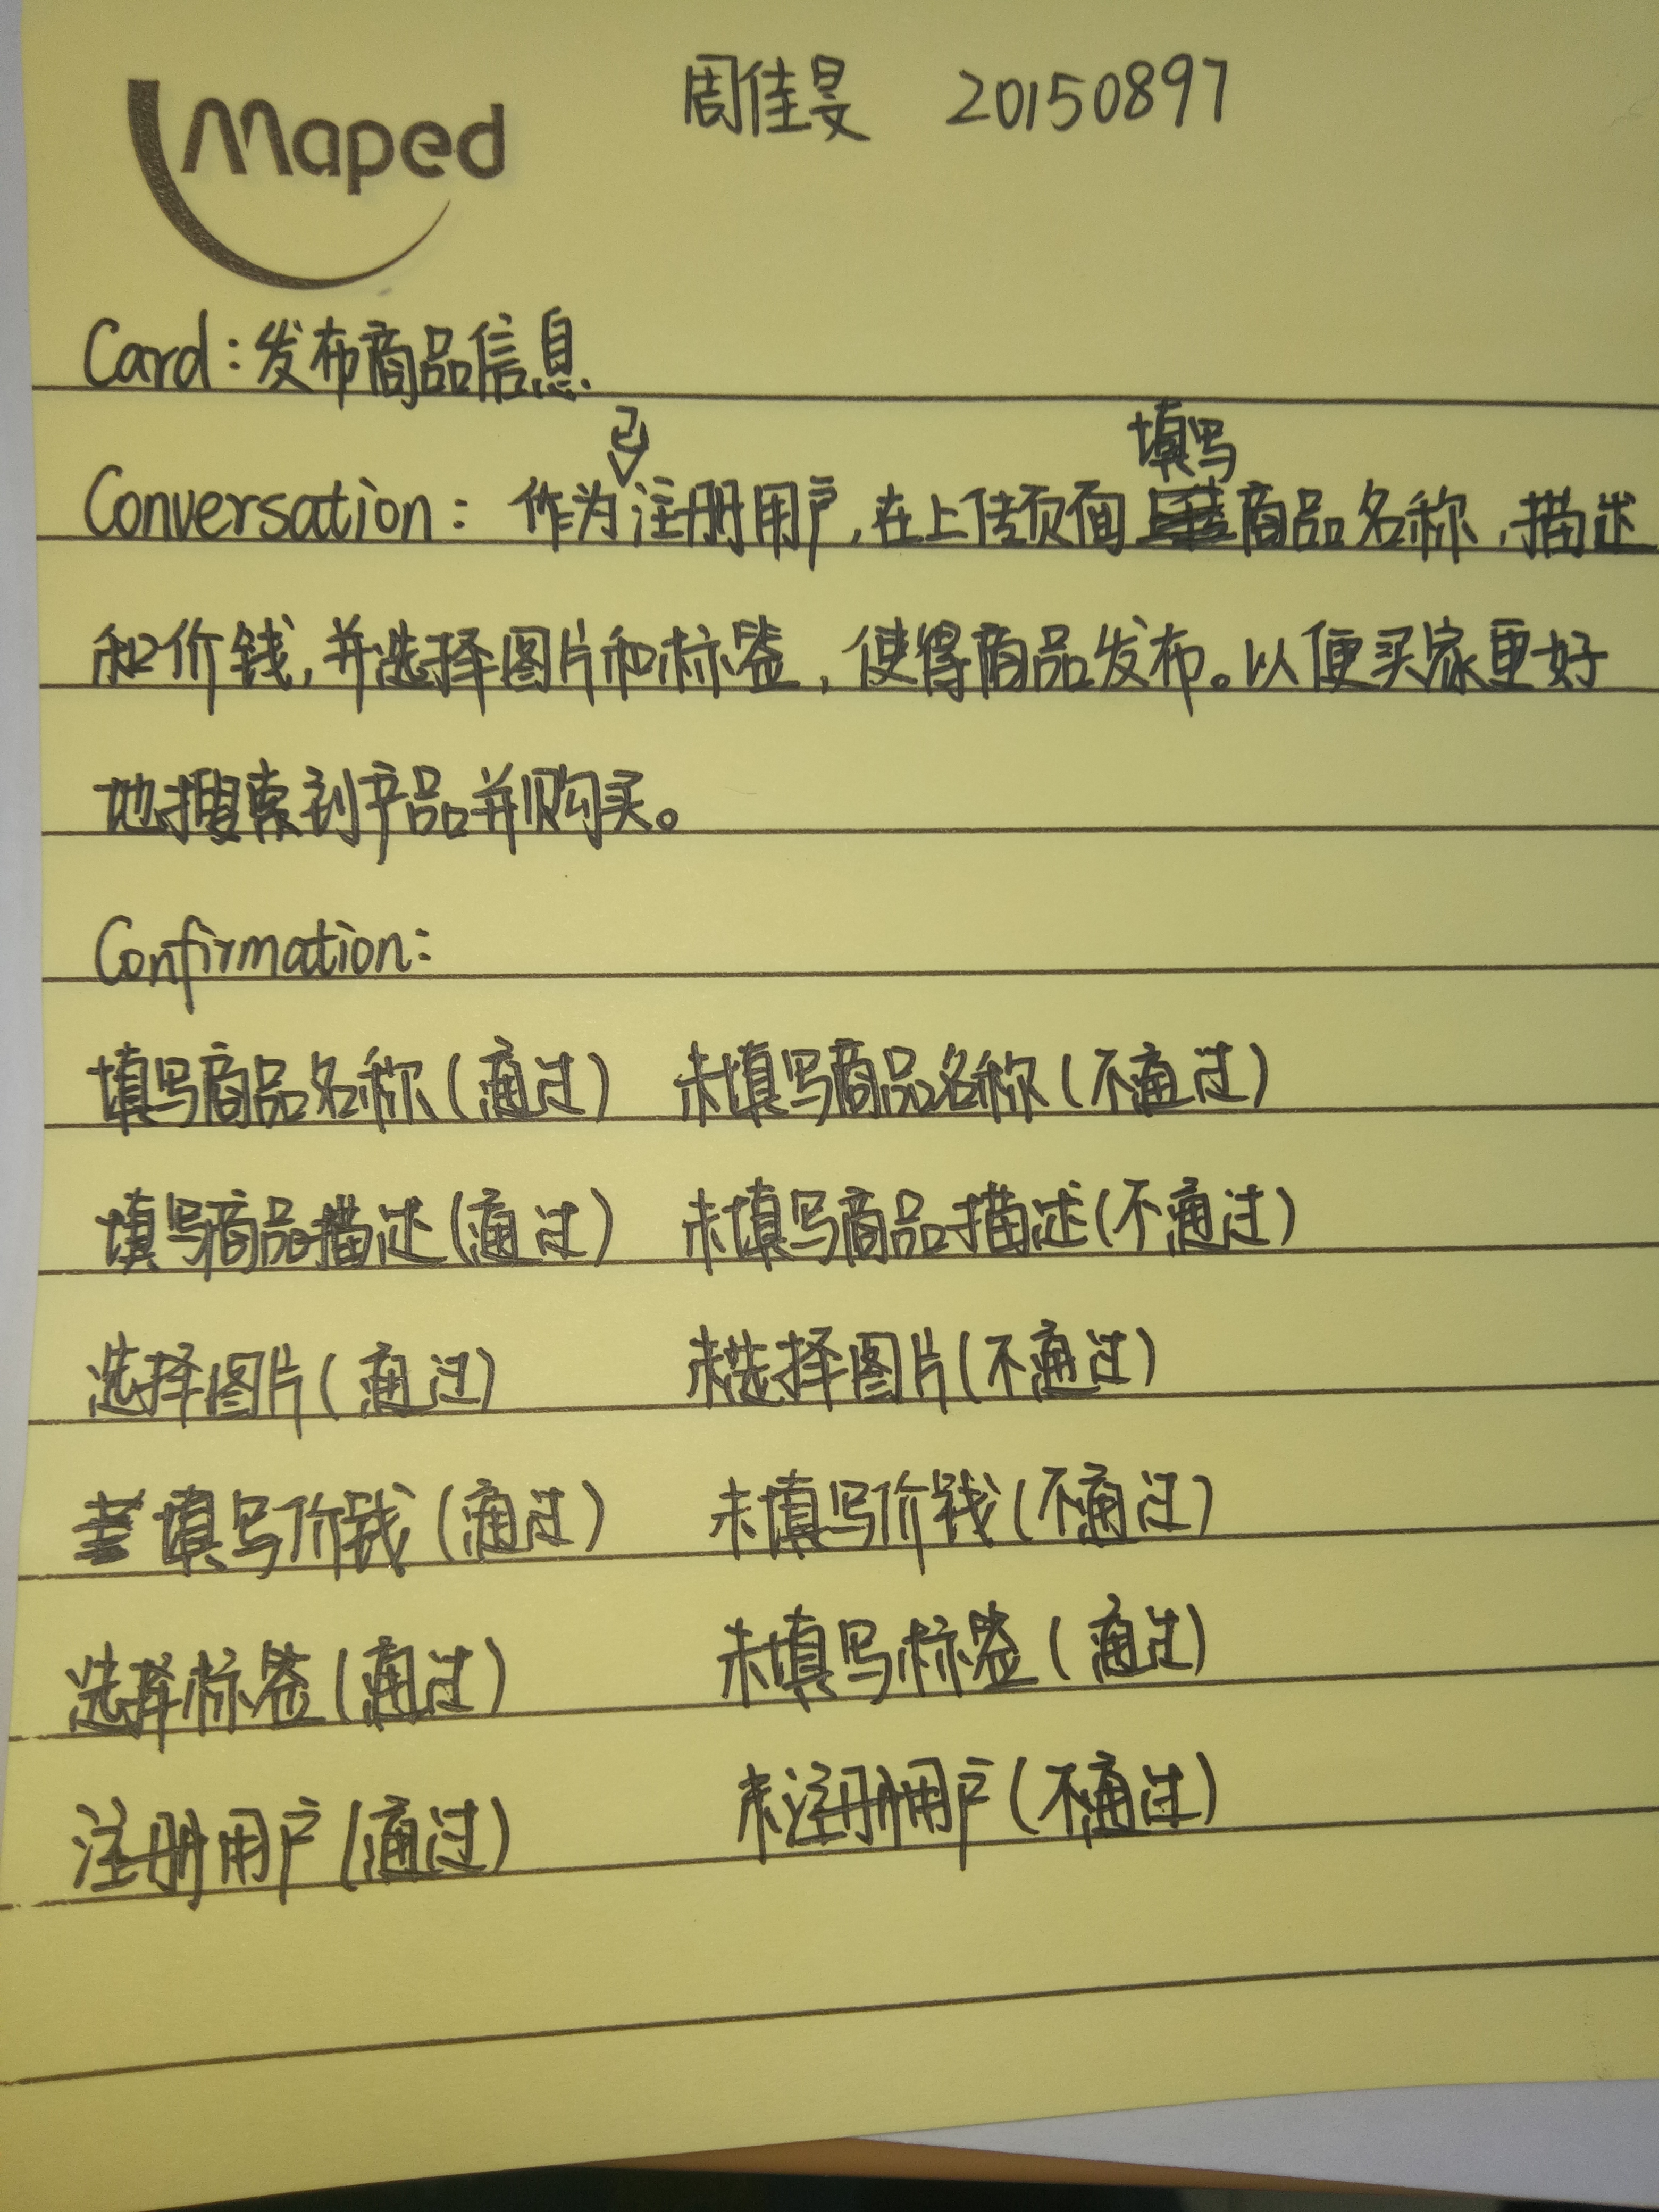 Maped
周佳旻 20150897
Card:发布商品信息
Conversation: 作为已注册用户,在上传页面填写商品名称,描述
和价钱,并选择图片和标签,使得商品发布。以便买家更好
地搜索到产品并购买。
Confirmation:
填写商品名称(通过) 未填写商品名称(不通过)
填写商品描述(通过) 未填写商品描述(不通过)
选择图片(通过) 未选择图片(不通过)
填写价钱(通过) 未填写价钱(不通过)
选择标签(通过) 未填写标签(通过)
注册用户(通过) 未注册用户(不通过)